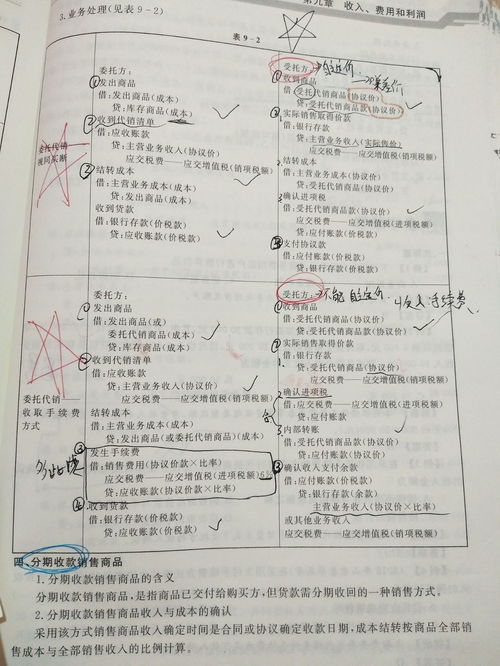 第九章 收入、费用和利润
3.业务处理(见表9-2)
表9-2
委托代销
视同买断
委托方:
①发出商品
借:发出商品(成本)
贷:库存商品(成本)
②收到代销清单
借:应收账款
贷:主营业务收入(协议价)
应交税费——应交增值税(销项税额)
③结转成本
借:主营业务成本(成本)
贷:发出商品(成本)
收到货款
借:银行存款(价税款)
贷:应收账款(价税款)
受托方:
①收到商品
借:受托代销商品(协议价)
贷:受托代销商品款(协议价)
实际销售取得价款
借:银行存款
贷:主营业务收入(实际售价)
应交税费——应交增值税(销项税额)
结转成本
借:主营业务成本(协议价)
贷:受托代销商品(协议价)
确认进项税
借:受托代销商品款(协议价)
应交税费——应交增值税(进项税额)
贷:应付账款(价税款)
支付协议款
借:应付账款(价税款)
贷:银行存款(价税款)
委托代销——
收取手续费
方式
委托方:
①发出商品
借:发出商品(或)
委托代销商品(成本)
贷:库存商品(成本)
②收到代销清单
借:应收账款
贷:主营业务收入(协议价)
应交税费——应交增值税(销项税额)
结转成本
借:主营业务成本(成本)
贷:发出商品(或委托代销商品)(成本)
③发生手续费
借:销售费用(协议价款×比率)
应交税费——应交增值税(进项税额)6%
贷:应收账款(协议价款×比率)
④收到货款
借:银行存款(价税款)
贷:应收账款(价税款)
受托方: 不能自主定价
①收到商品
借:受托代销商品(协议价)
贷:受托代销商品款(协议价)
实际销售取得价款
借:银行存款
贷:受托代销商品(协议价)
应交税费——应交增值税(销项税额)
确认进项税
借:应交税费——应交增值税(进项税额)
贷:应付账款
内部转账
借:受托代销商品款(协议价)
贷:应付账款(协议价)
③确认收入支付余款
借:应付账款(价税款)
贷:银行存款(余款)
主营业务收入(协议价×比率)
或其他业务收入
应交税费——应交增值税(销项税额)
四、分期收款销售商品
1.分期收款销售商品的含义
分期收款销售商品,是指商品已交付给购买方,但货款需分期收回的一种销售方式。
2.分期收款销售商品收入与成本的确认
采用该方式销售商品收入确定时间是合同或协议确定收款日期,成本结转按商品全部销
售成本与全部销售收入的比例计算。